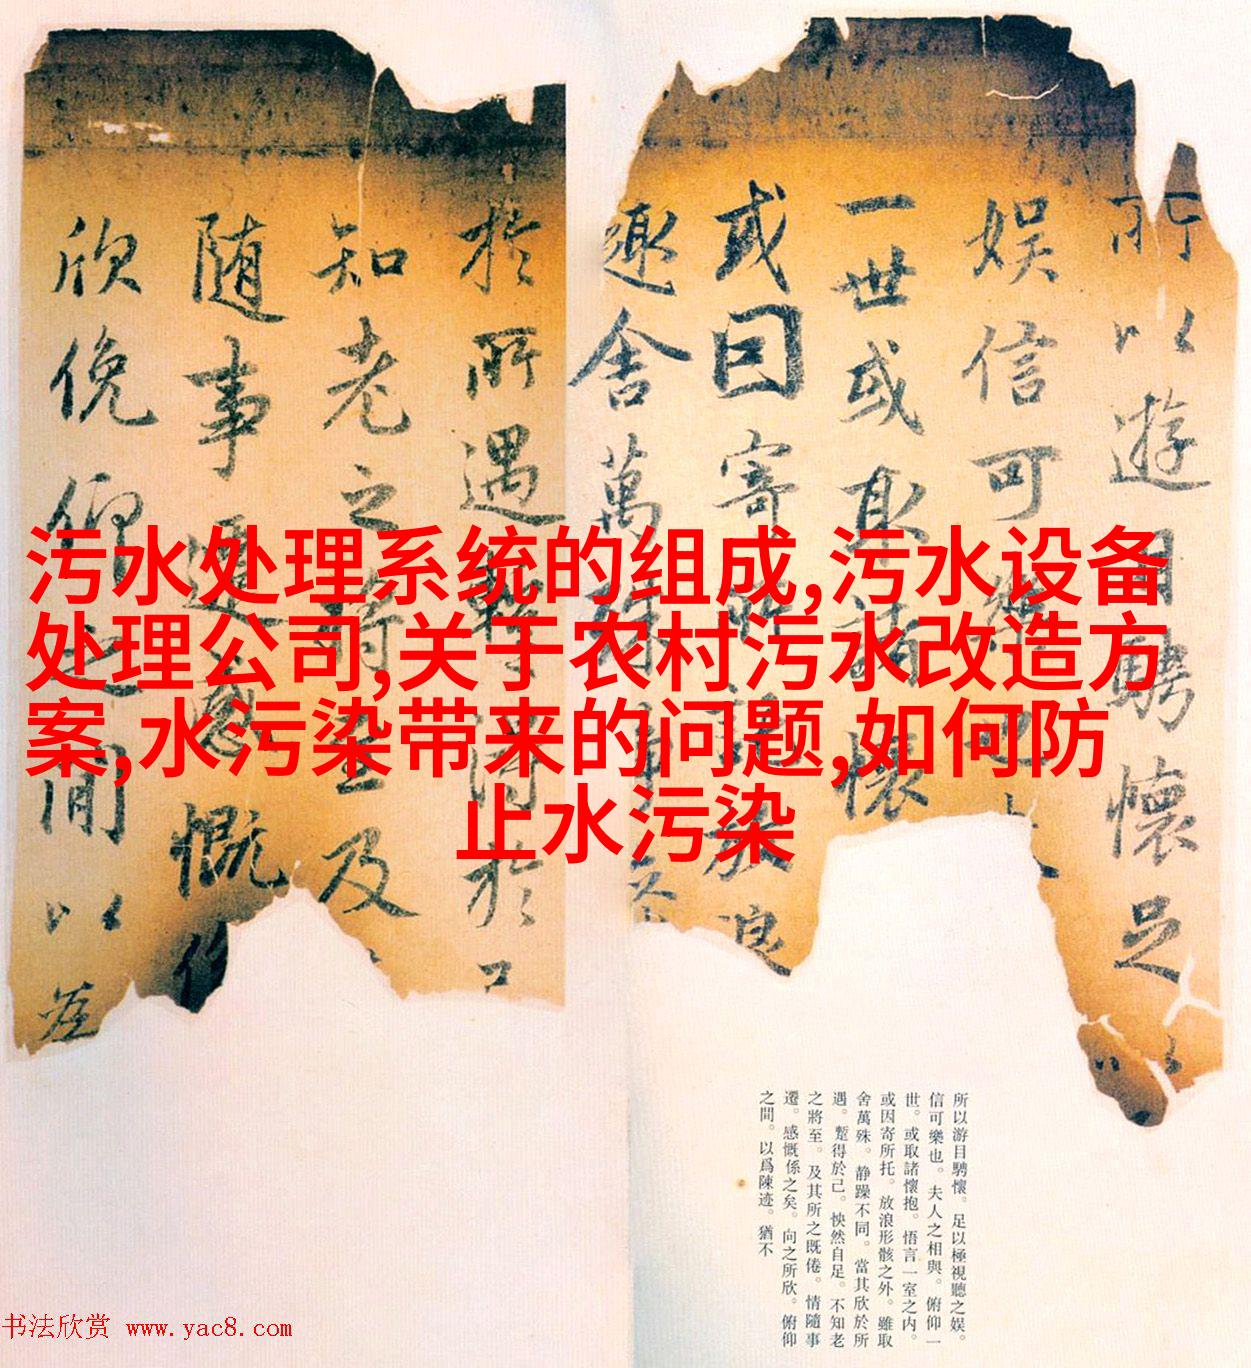 污水处理系统的组成,污水设备
处理公司,关于农村污水改造方
案,水污染带来的问题,如何防
止水污染
所以遊目騁懷足以
娱信可樂也
一世或取諸懷
或因寄所託放浪
趣舍萬殊
於所遇輙得於己
知老之將至及
随事遷感慨係
欣俛仰之間以為
所以游目騁懷。足以極視聽之娱。
信可樂也。夫人之相與。俯仰一
世。或取諸懷抱。悟言一室之内。
或因寄所托。放浪形骸之外。雖取
舍萬殊。静躁不同。當其欣於所
遇。蹔得於己。怏然自足。不知老
之將至。及其所之既倦。情隨事
遷。感慨係之矣。向之所欣。俯仰
之間。以爲陳迹。猶不
书法欣赏 www.yac8.com